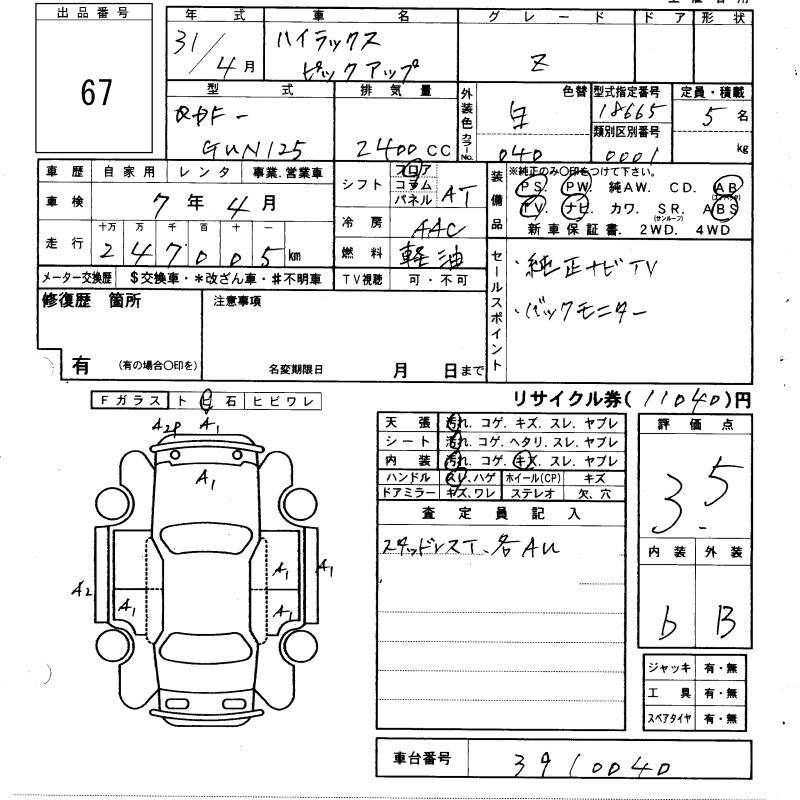 出品番号
67
年式
31/4月
車名
ハイラックス
ピックアップ
グレード
Z
ドア
形状
型式
QDF-
GUN125
排気量
2400CC
外装色
色替
白
カラーNo.
040
型式指定番号
18665
類別区別番号
0001
定員・積載
5名
kg
車歴 自家用 レンタ 事業.営業車
車検 7年4月
走行 十万 万 千 百 十 一
247005km
メーター交換歴 $交換車・*改ざん車・#不明車
シフト フロア コラム パネル AT
冷房 AAC
燃料 軽油
TV視聴 可・不可
装備品
※純正のみ〇印をつけて下さい。
PS. PW. 純AW. CD. AB
TV. ナビ. カワ. SR. ABS
(サンルーフ)
新車保証書. 2WD. 4WD
セールスポイント
・純正ナビTV
・バックモニター
修復歴 箇所
有 (有の場合〇印を)
注意事項
名変期限日 月 日まで
リサイクル券(11040)円
Fガラス トビ石 ヒビワレ
A2P A1
A1
A2
A1
A1
A1
A1
天張 汚れ.コゲ.キズ.スレ.ヤブレ
シート 汚れ.コゲ.ヘタリ.スレ.ヤブレ
内装 汚れ.コゲ.キズ.スレ.ヤブレ
ハンドル スレ.ハゲ ホイール(CP) キズ
ドアミラー キズ.ワレ ステレオ 欠、穴
査定員記入
スタッドレスT、各AU
評価点
3.5
内装 外装
b B
ジャッキ 有・無
工具 有・無
スペアタイヤ 有・無
車台番号 3910040